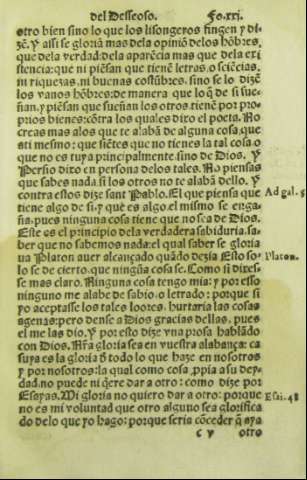 del Desseoso. Fo.xxj.
otro bien sino lo que los lisongeros fingen y di-
zē. Y aisi se gloriā mas dela opiniō delos hōbres,
que dela verdad: dela aparēcia mas que dela exi
stencia: que ni piēsan que tienē letras, o sciēcias,
ni riquezas, ni buenas costūbres, sino se lo dizē
los vanos hōbres: de manera que lo q̄ de si sue-
ñan, y piēsan que sueñan los otros, tienē por pro-
prios bienes: cōtra los quales dixo el poeta. No
creas mas alos que te alabā de alguna cosa, que
ati mesmo: que siētes que no tienes la tal cosa, o
que no es tuya principalmente, sino de Dios. Y
Persio dixo en persona delos tales. No piensas
que sabes nada, si los otros no te alabā dello. Y
contra estos dize sant Pablo. El que piensa que
Ad gal. 5
tiene algo de si, y q̄ es algo, el mismo se enga-
ña, pues ninguna cosa tiene que no sea de Dios.
Este es el principio dela verdadera sabiduria, sa-
ber que no sabemos nada: el qual saber se gloria
ua Platon auer alcançado quādo dezia Esto so-
Platon.
lo se de cierto, que ningūa cosa se. Como si dixes-
se mas claro. Ninguna cosa tengo mia: y por esso
ninguno me alabe de sabio, o letrado: porque si
yo acceptasse los tales loores, hurtaria las cosas
agenas: pero dense a Dios gracias dellas, pues
el me las dio. Y por esso dize vna prosa hablādo
con Dios. Nr̄a gloria sea en vuestra alabança: ca
suya es la gloria d̄ todo lo que haze en nosotros
y por nosotros: la qual como cosa ꝓpia a su dey-
dad, no puede ni q̄ere dar a otro: como dize por
Esayas. Mi gloria no quiero dar a otro: porque
Esai. 48
no es mi voluntad que otro alguno sea glorifica
do delo que yo hago: porque seria cōceder q̄ aya
c v otro